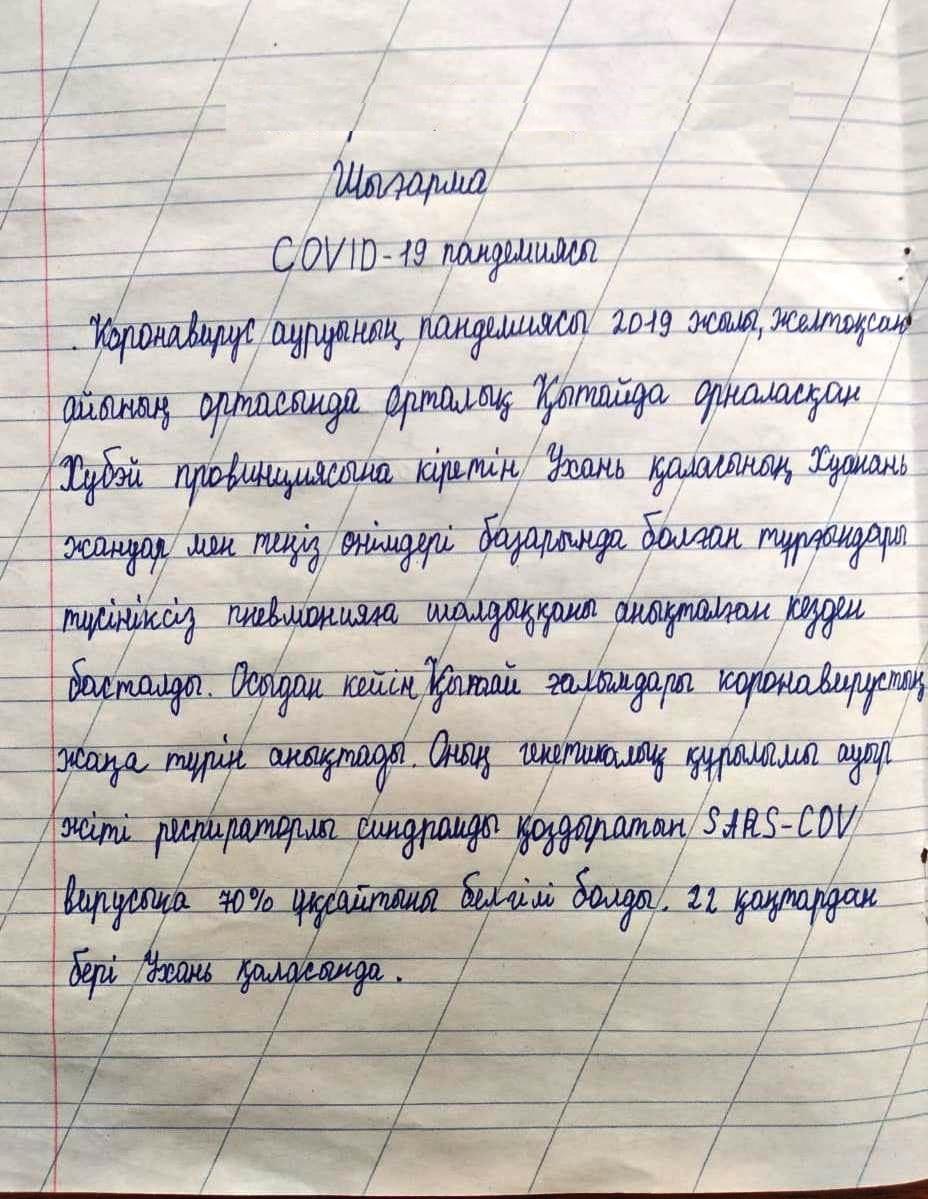 Шығарма
COVID-19 пандемиясы
Коронавирус ауруының пандемиясы 2019 жылы, желтоқсан
айының ортасында орталық Қытайда орналасқан
Хубэй провинциясына кіретін Ухань қаласының Хуанань
жануар мен теңіз өнімдері базарында болған тұрғындары
түсініксіз пневмонияға шалдыққаны анықталған кезден
басталды. Осыдан кейін Қытай ғалымдары коронавирустың
жаңа түрін анықтады. Оның генетикалық құрылымы ауыр
жіті респираторлы синдромды қоздыратын SARS-COV
вирусына 70% ұқсайтыны белгілі болды. 22 қаңтардан
бері Ухань қаласында.